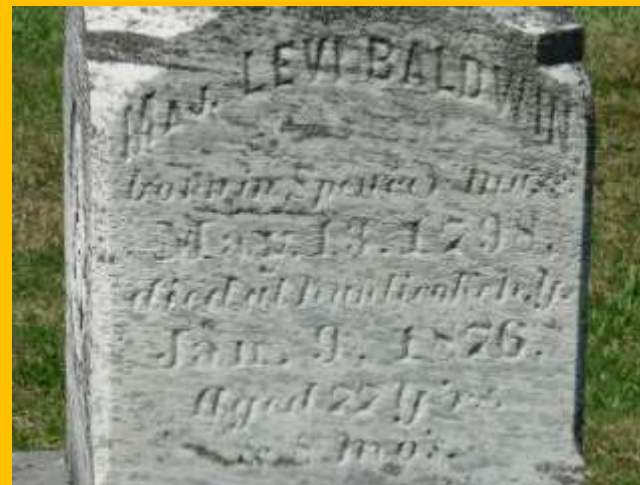 MAJ. LEVI BALDWIN
born in Spencer Mass.
May. 13. 1798.
died at
Jan. 9. 1876.
Aged 77 y'rs
& 8 mo's.